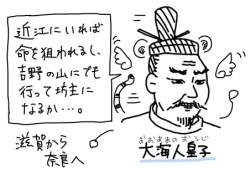 近江にいれば
命を狙われるし、
吉野の山にでも
行って坊主に
なるか…。
滋賀から
奈良へ
おおあまのおうじ
大海人皇子